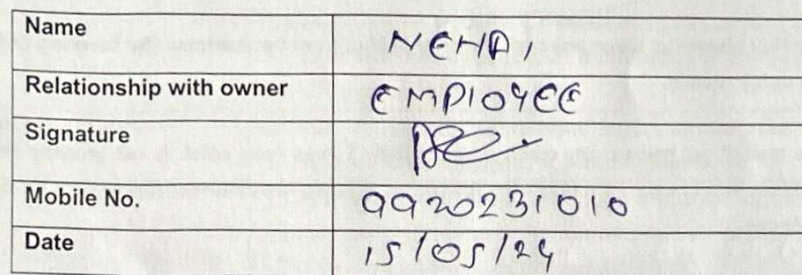 Name NEHA,
Relationship with owner EMPLOYEE
Signature
Mobile No. 9920231010
Date 15/05/24